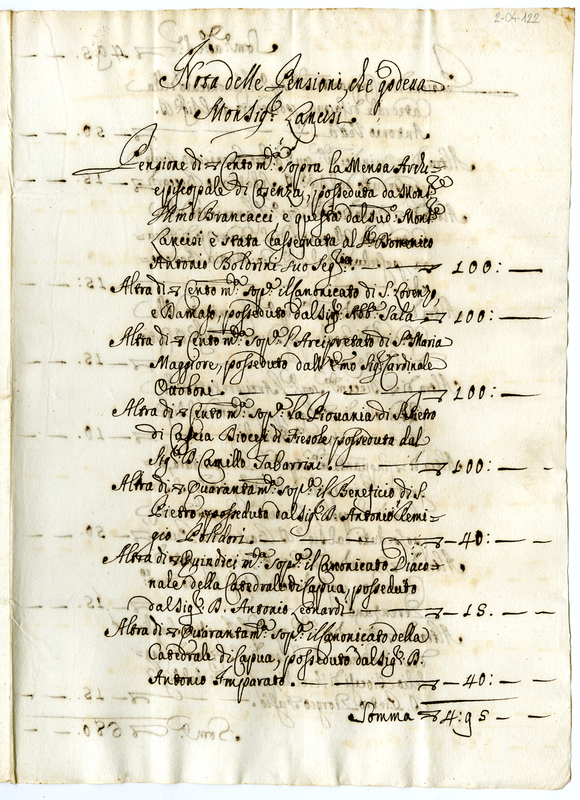 2-04-122
Nota delle Pensioni, che godeva
Monsig.r Lancisi.
Pensione di ∇ Cento m.ta sopra la Mensa Archi=
episcopale di Cosenza, posseduta da Mons.re
Ill.mo Brancacci e questa dal sud.o Mons.re
Lancisi è stata rassegnata al S.r Domenico
Antonio Boldrini suo Seg.rio. — ∇ 100: —
Altra di ∇ Cento m.ta sop.a il Canonicato di S. Lorenzo,
e Damaso, posseduto dal Sig.r Abb.e Sala — ∇ 100: —
Altra di ∇ Cento m.ta sop.a l'Arcipretato di S.ta Maria
Maggiore, posseduto dall'Em.o Sig.r Cardinale
Ottoboni. — ∇ 100: —
Altra di ∇ Cento m.ta sop.a la Piovania di S. Pietro
di Cascia Diocesi di Fiesole, posseduta dal
Sig.r D. Camillo Tabarrini. — ∇ 100: —
Altra di ∇ Quaranta m.ta sop.a il Beneficio di S.
Pietro, posseduto dal Sig.r D. Antonio Remi=
gio Polidori. — ∇ 40: —
Altra di ∇ Quindici m.ta sop.a il Canonicato Diaco=
nale della Catedrale di Capua, posseduto
dal Sig.r D. Antonio Leonardi — ∇ 15. —
Altra di ∇ Quaranta m.ta sop.a il Canonicato della
Catedrale di Capua, posseduto dal Sig.r D.
Antonio Imparato. — ∇ 40: —
Somma ∇ 4:95 —